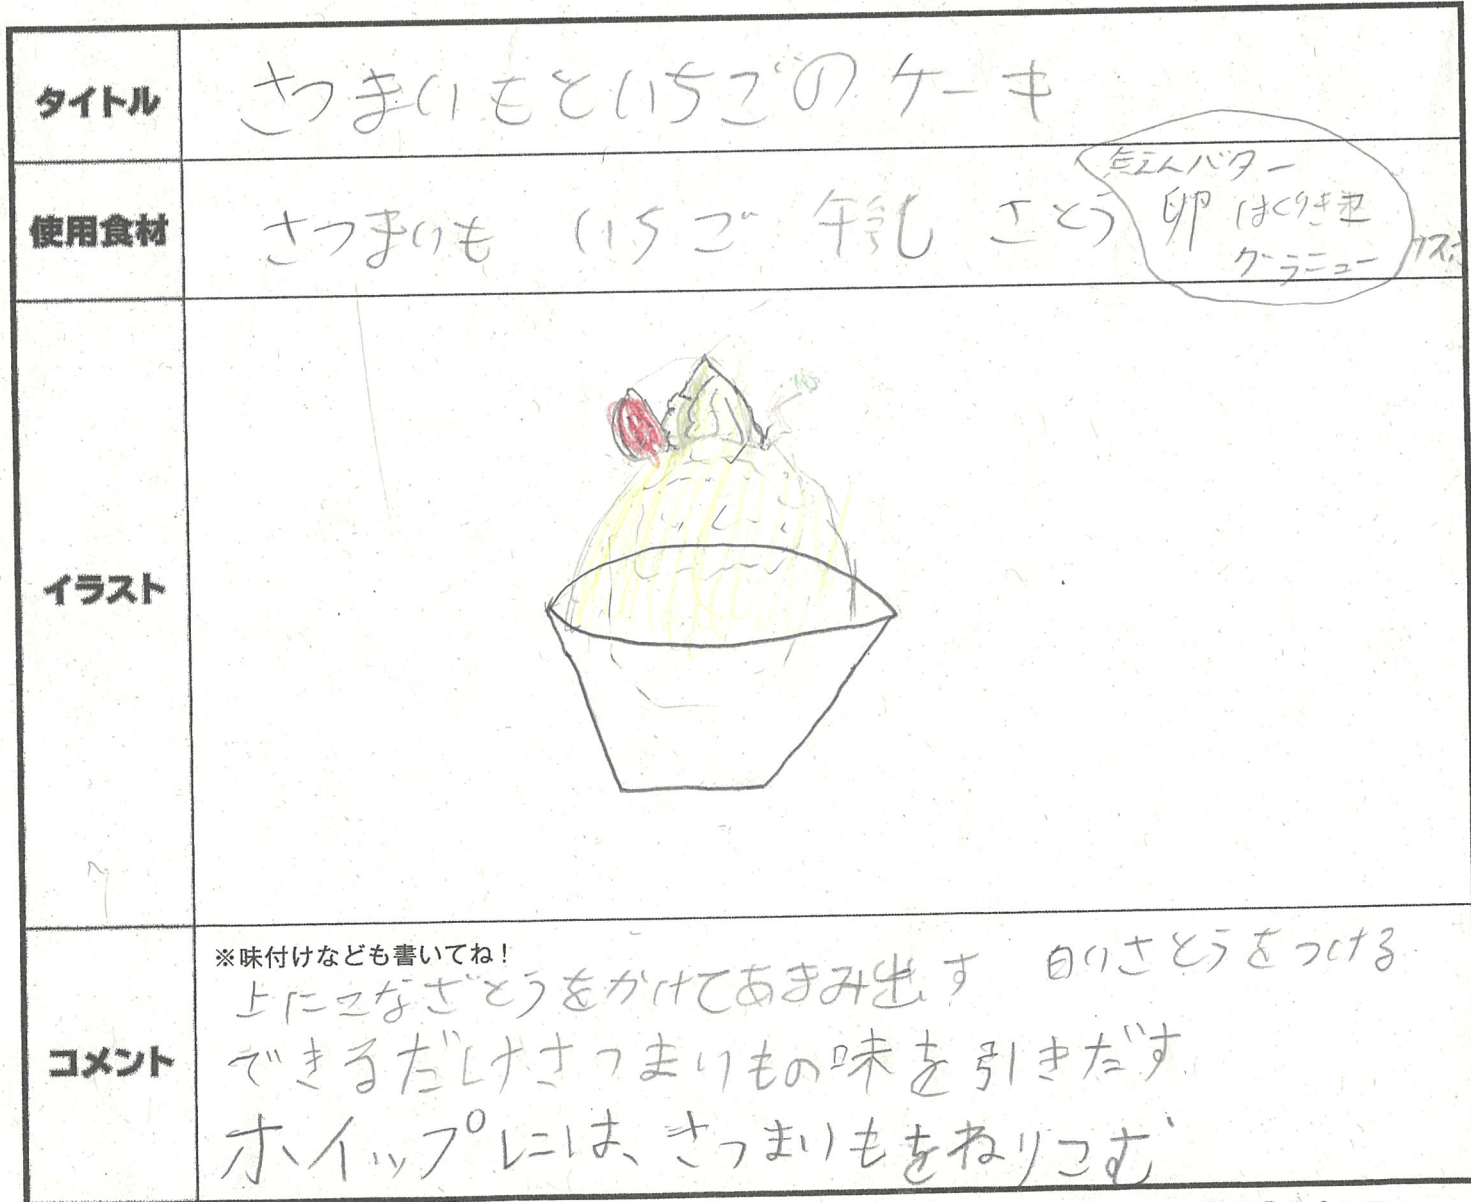 タイトル
さつまいもといちごのケーキ
使用食材
さつまいも いちご 牛乳 さとう
無えんバター
卵 はくりき粉
グラニュー
イラスト
コメント
※味付けなども書いてね！
白いさとうをつける
上にこなざとうをかけてあまみ出す
できるだけさつまいもの味を引きだす
ホイップには、さつまいもをねりこむ